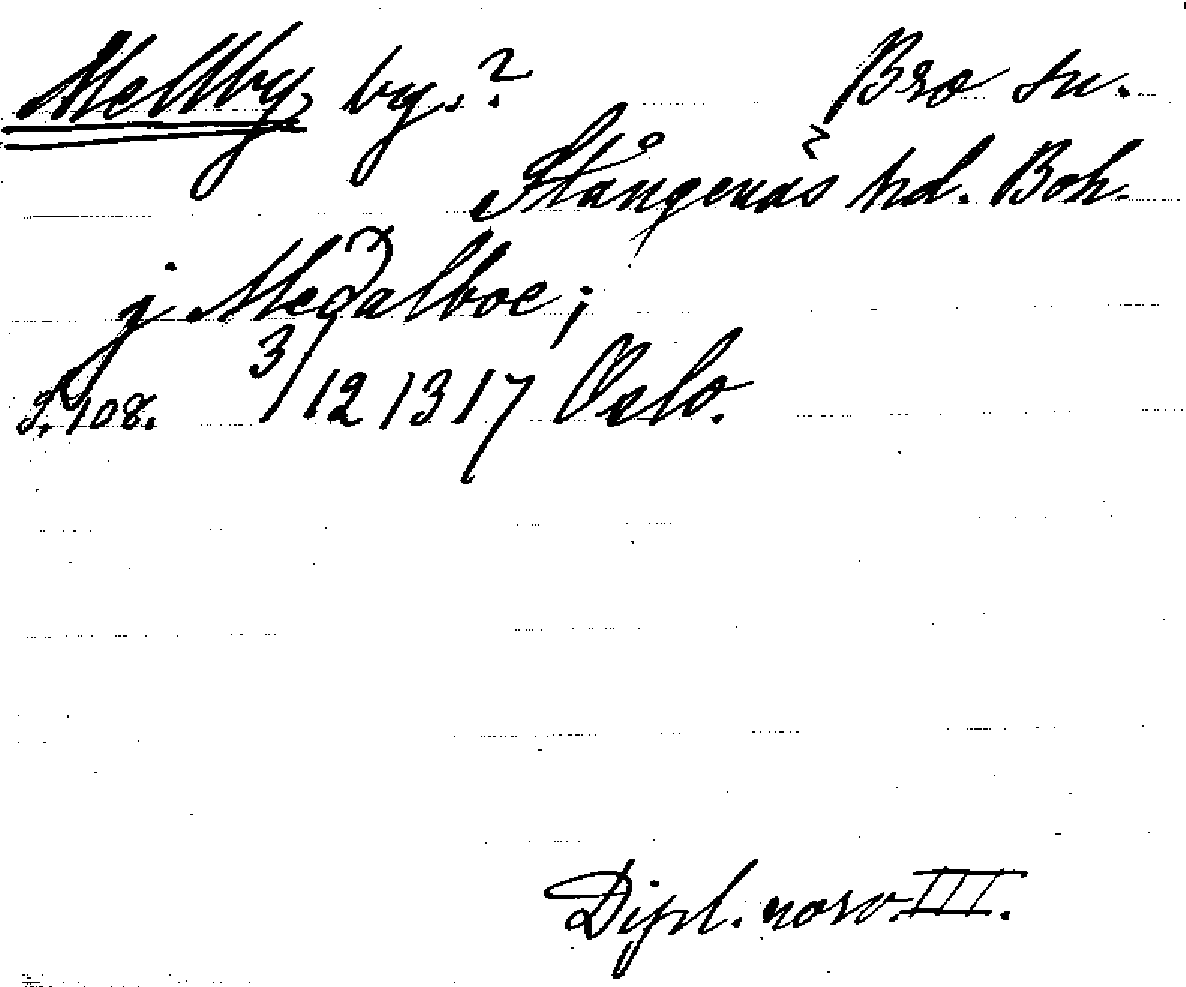 Mellby, by.? Bro sn.
Stångenäs hd. Boh.
j Meðalboe;
S. 108. 3/12 1317 Oslo.
Dipl. norv. III.